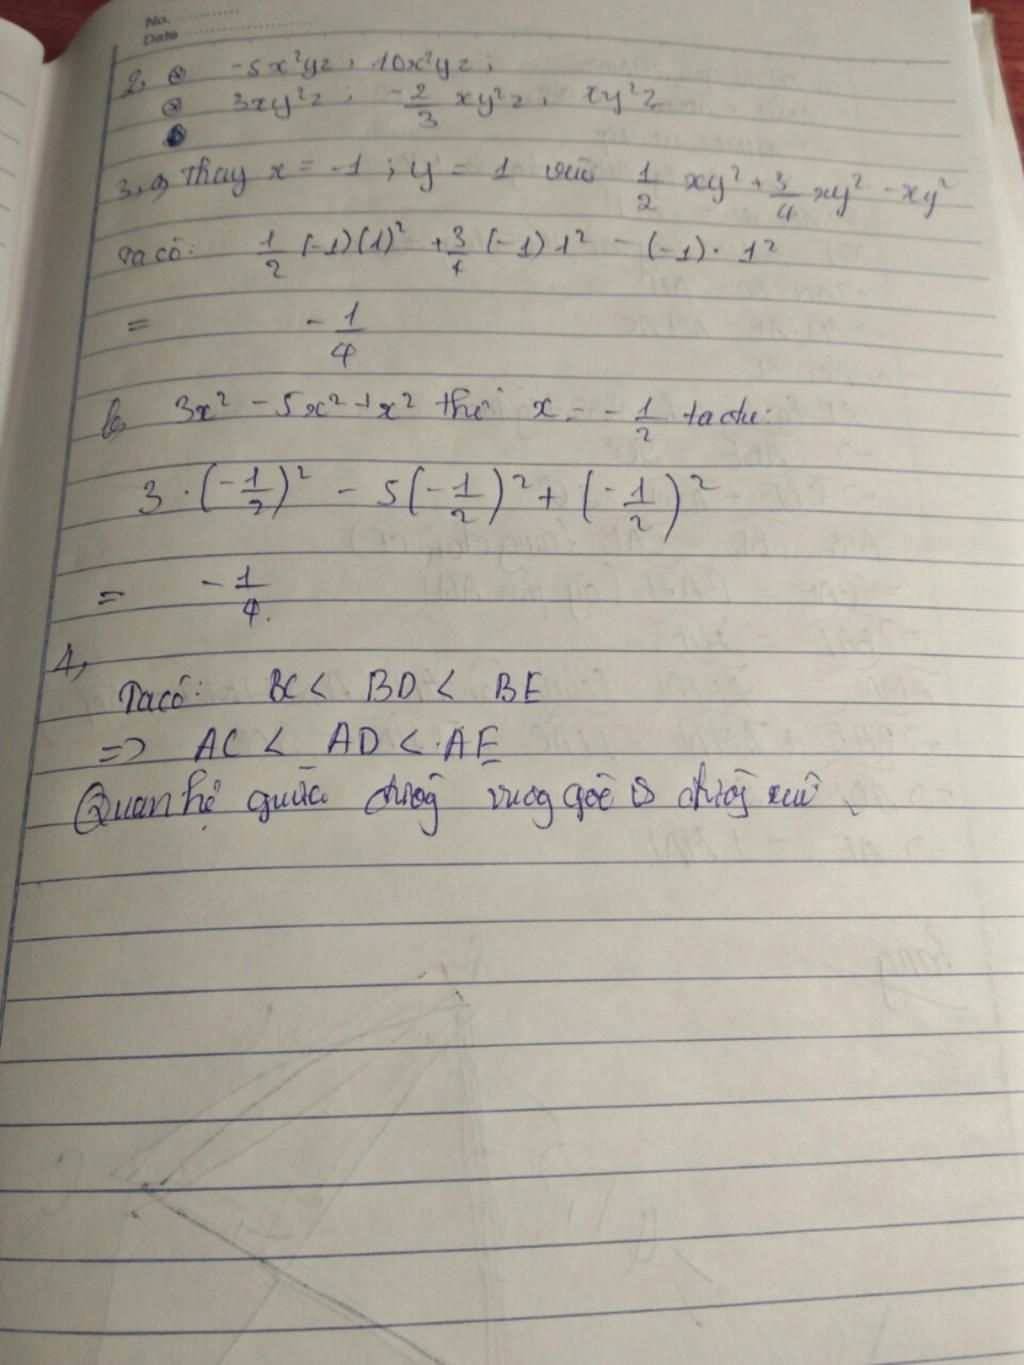 No. ............
Date ....................
2, -5x²yz ; 10x²yz ;
3xy²z ; -2/3 xy²z ; xy²z
3, a, Thay x = -1 ; y = 1 vào 1/2 xy² + 3/4 xy² - xy²
Ta có: 1/2 (-1)(1)² + 3/4 (-1) 1² - (-1) . 1²
= -1/4
b, 3x² - 5x² + x² thế x = -1/2 ta
3 . (-1/2)² - 5(-1/2)² + (-1/2)²
= -1/4.
4,
Ta có: BC < BD < BE
=> AC < AD < AE
Quan hệ giữa đường vuông góc & đường xiên